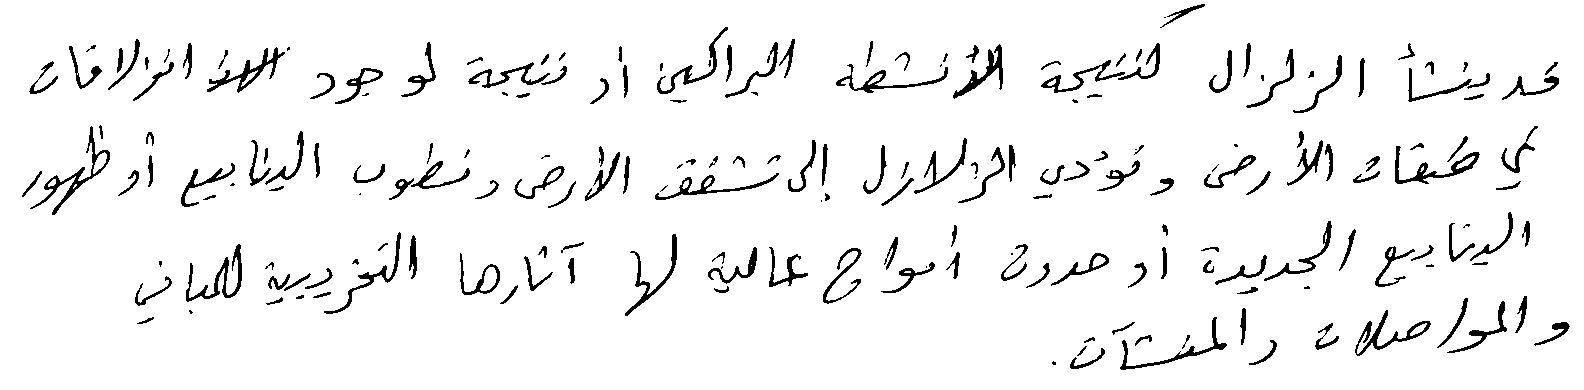 قد ينشأ الزلزال كنتيجة الأنشطه البراكين أو نتيجة لوجود انزلاقات
في طبقات الأرض وتؤدي الزلازل إلى تشقق الأرض ونضوب الينابيع أو ظهور
الينابيع الجديدة أو حدوث أمواج عالية لها آثارها التخريبية للمباني
والمواصلات والمنشآت.